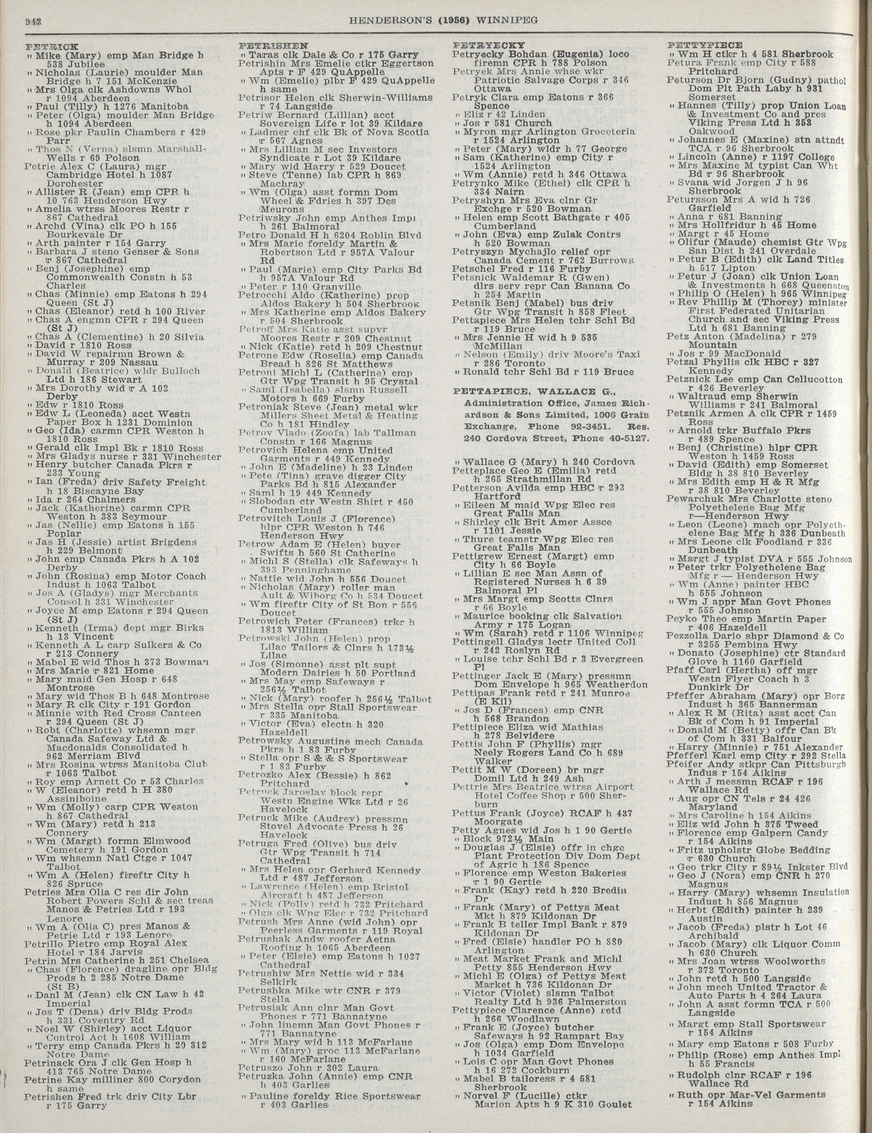 942
HENDERSON'S (1956) WINNIPEG
PETRICK
" Mike (Mary) emp Man Bridge h
538 Jubilee
" Nicholas (Laurie) moulder Man
Bridge h 7 151 McKenzie
" Mrs Olga clk Ashdowns Whol
r 1094 Aberdeen
" Paul (Tilly) h 1276 Manitoba
" Peter (Olga) moulder Man Bridge
h 1094 Aberdeen
" Rose pkr Paulin Chambers r 429
Parr
" Thos N (Verna) slsmn Marshall-
Wells r 69 Polson
Petrie Alex C (Laura) mgr
Cambridge Hotel h 1087
Dorchester
" Allister R (Jean) emp CPR h
10 763 Henderson Hwy
" Amelia wtrss Moores Restr r
867 Cathedral
" Archd (Vina) clk PO h 155
Bourkevale Dr
" Arth painter r 154 Garry
" Barbara J steno Genser & Sons
r 867 Cathedral
" Benj (Josephine) emp
Commonwealth Constn h 53
Charles
" Chas (Minnie) emp Eatons h 294
Queen (St J)
" Chas (Eleanor) retd h 100 River
" Chas A engmn CPR r 294 Queen
(St J)
" Chas A (Clementine) h 20 Silvia
" David r 1810 Ross
" David W repairmn Brown &
Murray r 209 Nassau
" Donald (Beatrice) wldr Bulloch
Ltd h 186 Stewart
" Mrs Dorothy wid r A 102
Derby
" Edw r 1810 Ross
" Edw L (Leoneda) acct Westn
Paper Box h 1231 Dominion
" Geo (Ida) carmn CPR Weston h
1810 Ross
" Gerald clk Impl Bk r 1810 Ross
" Mrs Gladys nurse r 331 Winchester
" Henry butcher Canada Pkrs r
233 Young
" Ian (Freda) driv Safety Freight
h 18 Biscayne Bay
" Ida r 264 Chalmers
" Jack (Katherine) carmn CPR
Weston h 383 Seymour
" Jas (Nellie) emp Eatons h 155
Poplar
" Jas H (Jessie) artist Brigdens
h 229 Belmont
" John emp Canada Pkrs h A 102
Derby
" John (Rosina) emp Motor Coach
Indust h 1063 Talbot
" Jos A (Gladys) mgr Merchants
Consol h 331 Winchester
" Joyce M emp Eatons r 294 Queen
(St J)
" Kenneth (Irma) dept mgr Birks
h 13 Vincent
" Kenneth A L carp Sulkers & Co
r 213 Connery
" Mabel E wid Thos h 373 Bowman
" Mrs Marie r 821 Home
" Mary maid Gen Hosp r 648
Montrose
" Mary wid Thos B h 648 Montrose
" Mary R clk City r 191 Gordon
" Minnie with Red Cross Canteen
r 294 Queen (St J)
" Robt (Charlotte) whsemn mgr
Canada Safeway Ltd &
Macdonalds Consolidated h
962 Merriam Blvd
" Mrs Rosina wtrss Manitoba Club
r 1063 Talbot
" Roy emp Arnett Co r 53 Charles
" W (Eleanor) retd h H 380
Assiniboine
" Wm (Molly) carp CPR Weston
h 867 Cathedral
" Wm (Mary) retd h 213
Connery
" Wm (Margt) formn Elmwood
Cemetery h 191 Gordon
" Wm whsemn Natl Ctge r 1047
Talbot
" Wm A (Helen) fireftr City h
826 Spruce
Petries Mrs Olia C res dir John
Robert Powers Schl & sec treas
Manos & Petries Ltd r 193
Lenore
" Wm A (Olia C) pres Manos &
Petrie Ltd r 193 Lenore
Petrillo Pietro emp Royal Alex
Hotel r 184 Jarvis
Petrin Mrs Catherine h 251 Chelsea
" Chas (Florence) dragline opr Bldg
Prods h 2 285 Notre Dame
(St B)
" Danl M (Jean) clk CN Law h 42
Imperial
" Jos T (Dena) driv Bldg Prods
h 331 Coventry Rd
" Noel W (Shirley) acct Liquor
Control Act h 1608 William
" Terry emp Canada Pkrs h 29 312
Notre Dame
Petrinack Ora J clk Gen Hosp h
413 765 Notre Dame
Petrine Kay milliner 800 Corydon
h same
Petrishen Fred trk driv City Lbr
r 175 Garry
PETRISHEN
" Taras clk Dale & Co r 175 Garry
Petrishin Mrs Emelie ctkr Eggertson
Apts r F 429 QuAppelle
" Wm (Emelie) plbr F 429 QuAppelle
h same
Petrisor Helen clk Sherwin-Williams
r 74 Langside
Petriw Bernard (Lillian) acct
Sovereign Life r lot 39 Kildare
" Ladmer chf clk Bk of Nova Scotia
r 567 Agnes
" Mrs Lillian M sec Investors
Syndicate r Lot 39 Kildare
" Mary wid Harry r 529 Doucet
" Steve (Tenne) lab CPR h 869
Machray
" Wm (Olga) asst formn Dom
Wheel & Fdries h 397 Des
Meurons
Petriwsky John emp Anthes Impl
h 261 Balmoral
Petro Donald H h 6204 Roblin Blvd
" Mrs Marie foreldy Martin &
Robertson Ltd r 957A Valour
Rd
" Paul (Marie) emp City Parks Bd
h 957A Valour Rd
" Peter r 110 Granville
Petrocchi Aldo (Katherine) prop
Aldos Bakery h 504 Sherbrook
" Mrs Katherine emp Aldos Bakery
r 504 Sherbrook
Petroff Mrs Katie asst supvr
Moores Restr r 209 Chestnut
" Nick (Katie) retd h 209 Chestnut
Petrone Edw (Roselia) emp Canada
Bread h 826 St Matthews
Petroni Michl L (Catherine) emp
Gtr Wpg Transit h 95 Crystal
" Saml (Isabella) slsmn Russell
Motors h 669 Furby
Petroniak Steve (Jean) metal wkr
Millers Sheet Metal & Heating
Co h 181 Hindley
Petrov Vlado (Zoofa) lab Tallman
Constn r 166 Magnus
Petrovich Helena emp United
Garments r 449 Kennedy
" John E (Madeline) h 23 Linden
" Pete (Tina) grave digger City
Parks Bd h 815 Alexander
" Saml h 19 449 Kennedy
" Slobodan ctr Westn Shirt r 450
Cumberland
Petrovitch Louis J (Florence)
hlpr CPR Weston h 746
Henderson Hwy
Petrow Adam E (Helen) buyer
Swifts h 560 St Catherine
" Michl S (Stella) clk Safeways h
393 Penninghame
" Nattie wid John h 556 Doucet
" Nicholas (Mary) roller man
Ault & Wiborg Co h 534 Doucet
" Wm fireftr City of St Bon r 556
Doucet
Petrowich Peter (Frances) trkr h
1813 William
Petrowski John (Helen) prop
Lilac Tailors & Clnrs h 173½
Lilac
" Jos (Simonne) asst plt supt
Modern Dairies h 50 Portland
" Mrs May emp Safeways r
256½ Talbot
" Nick (Mary) roofer h 256½ Talbot
" Mrs Stella opr Stall Sportswear
r 335 Manitoba
" Victor (Eva) electn h 320
Hazeldell
Petrowsky Augustine mech Canada
Pkrs h 1 83 Furby
" Stella opr S & S Sportswear
r 1 83 Furby
Petrozko Alex (Bessie) h 862
Pritchard
Petruck Jaroslav block repr
Westn Engine Wks Ltd r 26
Havelock
Petruck Mike (Audrey) pressmn
Stovel Advocate Press h 26
Havelock
Petruga Fred (Olive) bus driv
Gtr Wpg Transit h 714
Cathedral
" Mrs Helen opr Gerhard Kennedy
Ltd r 487 Jefferson
" Lawrence (Helen) emp Bristol
Aircraft h 487 Jefferson
" Nick (Polly) retd h 732 Pritchard
" Olga clk Wng Elec r 732 Pritchard
Petrush Mrs Anne (wid John) opr
Peerless Garments r 119 Royal
Petrushak Andw roofer Aetna
Roofing h 1065 Aberdeen
" Peter (Elsie) emp Eatons h 1027
Cathedral
Petrushiw Mrs Nettie wid r 334
Selkirk
Petrushka Mike wtr CNR r 379
Stella
Petrusiak Ann clnr Man Govt
Phones r 771 Bannatyne
" John linemn Man Govt Phones r
771 Bannatyne
" Mrs Mary wid h 113 McFarlane
" Wm (Mary) groc 113 McFarlane
r 160 McFarlane
Petruszo John r 302 Laura
Petruzka John (Annie) emp CNR
h 403 Garlies
" Pauline foreldy Rice Sportswear
r 403 Garlies
PETRYECKY
Petryecky Bohdan (Eugenia) loco
firemn CPR h 788 Polson
Petryek Mrs Annie whse wkr
Patriotic Salvage Corps r 346
Ottawa
Petryk Clara emp Eatons r 366
Spence
" Eliz r 42 Linden
" Jos r 581 Church
" Myron mgr Arlington Groceteria
r 1524 Arlington
" Peter (Mary) wldr h 77 George
" Sam (Katherine) emp City r
1524 Arlington
" Wm (Annie) retd h 346 Ottawa
Petrynko Mike (Ethel) clk CPR h
334 Nairn
Petryshyn Mrs Eva clnr Gr
Exchge r 520 Bowman
" Helen emp Scott Bathgate r 405
Cumberland
" John (Eva) emp Zulak Contrs
h 520 Bowman
Petryszyn Mychajlo relief opr
Canada Cement r 762 Burrows
Petschel Fred r 116 Furby
Petsnick Waldemar R (Gwen)
dlrs serv repr Can Banana Co
h 254 Martin
Petsnik Benj (Mabel) bus driv
Gtr Wpg Transit h 858 Fleet
Pettapiece Mrs Helen tchr Schl Bd
r 119 Bruce
" Mrs Jennie H wid h 9 535
McMillan
" Nelson (Emily) driv Moore's Taxi
r 286 Toronto
" Ronald tchr Schl Bd r 119 Bruce
PETTAPIECE, WALLACE G.,
Administration Office, James Rich-
ardson & Sons Limited, 1006 Grain
Exchange, Phone 92-3451. Res.
240 Cordova Street, Phone 40-5127.
" Wallace G (Mary) h 240 Cordova
Petteplace Geo E (Emilia) retd
h 265 Strathmillan Rd
Petterson Avilda emp HBC r 293
Hartford
" Eileen M maid Wpg Elec res
Great Falls Man
" Shirley clk Brit Amer Assce
r 1101 Jessie
" Thure teamstr Wpg Elec res
Great Falls Man
Pettigrew Ernest (Margt) emp
City h 66 Boyle
" Lillian E sec Man Assn of
Registered Nurses h 6 39
Balmoral Pl
" Mrs Margt emp Scotts Clnrs
r 66 Boyle
" Maurice booking clk Salvation
Army r 175 Logan
" Wm (Sarah) retd r 1106 Winnipeg
Pettingell Gladys lectr United Coll
r 242 Roslyn Rd
" Louise tchr Schl Bd r 3 Evergreen
Pl
Pettinger Jack E (Mary) pressmn
Dom Envelope h 965 Weatherdon
Pettipas Frank retd r 241 Munroe
(E Kil)
" Jos D (Frances) emp CNR
h 568 Brandon
Pettipiece Eliza wid Mathias
h 278 Belvidere
Pettis John F (Phyllis) mgr
Neely Rogers Land Co h 689
Walker
Pettit M W (Doreen) br mgr
Domil Ltd h 249 Ash
Pettrie Mrs Beatrice wtrss Airport
Hotel Coffee Shop r 500 Sher-
burn
Pettus Frank (Joyce) RCAF h 437
Moorgate
Petty Agnes wid Jos h 1 90 Gertie
" Block 972½ Main
" Douglas J (Elsie) offr in chge
Plant Protection Div Dom Dept
of Agric h 186 Spence
" Florence emp Weston Bakeries
r 1 90 Gertie
" Frank (Kay) retd h 220 Bredin
Dr
" Frank (Mary) of Pettys Meat
Mkt h 879 Kildonan Dr
" Frank B teller Impl Bank r 879
Kildonan Dr
" Fred (Elsie) handler PO h 880
Arlington
" Meat Market Frank and Michl
Petty 855 Henderson Hwy
" Michl E (Olga) of Pettys Meat
Market h 736 Kildonan Dr
" Victor (Violet) slsmn Talbot
Realty Ltd h 936 Palmerston
Pettypiece Clarence (Anne) retd
h 266 Woodlawn
" Frank E (Joyce) butcher
Safeways h 92 Rampart Bay
" Jos (Olga) emp Dom Envelope
h 1034 Garfield
" Lois C opr Man Govt Phones
h 16 272 Cockburn
" Mabel B tailoress r 4 581
Sherbrook
" Norvel F (Lucille) ctkr
Marion Apts h 9 K 310 Goulet
PETTYPIECE
" Wm H ctkr h 4 581 Sherbrook
Petura Frank emp City r 588
Pritchard
Peturson Dr Bjorn (Gudny) pathol
Dom Plt Path Laby h 931
Somerset
" Hannes (Tilly) prop Union Loan
& Investment Co and pres
Viking Press Ltd h 353
Oakwood
" Johannes E (Maxine) stn attndt
TCA r 96 Sherbrook
" Lincoln (Anne) r 1197 College
" Mrs Maxine M typist Can Wht
Bd r 96 Sherbrook
" Svana wid Jorgen J h 96
Sherbrook
Petursson Mrs A wid h 726
Garfield
" Anna r 681 Banning
" Mrs Hollfridur h 45 Home
" Margt r 45 Home
" Olifur (Maude) chemist Gtr Wpg
San Dist h 241 Overdale
" Petur B (Edith) clk Land Titles
h 517 Lipton
" Petur J (Joan) clk Union Loan
& Investments h 668 Queenston
" Philip O (Helen) h 965 Winnipeg
" Rev Phillip M (Thorey) minister
First Federated Unitarian
Church and sec Viking Press
Ltd h 681 Banning
Petz Anton (Madelina) r 279
Mountain
" Jos r 99 MacDonald
Petzal Phyllis clk HBC r 327
Kennedy
Petznick Lee emp Can Cellucotton
r 426 Beverley
" Waltraud emp Sherwin
Williams r 241 Balmoral
Petznik Armen A clk CPR r 1459
Ross
" Arnold trkr Buffalo Pkrs
r 489 Spence
" Benj (Christine) hlpr CPR
Weston h 1459 Ross
" David (Edith) emp Somerset
Bldg h 38 810 Beverley
" Mrs Edith emp H & R Mfg
r 38 810 Beverley
Pewarchuk Mrs Charlotte steno
Polyethelene Bag Mfg
r—Henderson Hwy
" Leon (Leone) mach opr Polyeth-
elene Bag Mfg h 336 Dunbeath
" Mrs Leone clk Foodland r 336
Dunbeath
" Margt J typist DVA r 555 Johnson
" Peter trkr Polyethelene Bag
Mfg r — Henderson Hwy
" Wm (Anne) painter HBC
h 555 Johnson
" Wm J appr Man Govt Phones
r 555 Johnson
Peyko Theo emp Martin Paper
r 406 Hazeldell
Pezzolla Dario shpr Diamond & Co
r 3255 Pembina Hwy
" Donato (Josephine) ctr Standard
Glove h 1160 Garfield
Pfaff Carl (Hertha) off mgr
Westn Flyer Coach h 3
Dunkirk Dr
Pfeffer Abraham (Mary) opr Borg
Indust h 365 Bannerman
" Alex R M (Rita) asst acct Can
Bk of Com h 91 Imperial
" Donald M (Betty) offr Can Bk
of Com h 331 Balfour
" Harry (Minnie) r 751 Alexander
Pfefferl Karl emp City r 292 Stella
Pfeifer Andy stkpr Can Pittsburgh
Indus r 154 Aikins
" Arth J messmn RCAF r 196
Wallace Rd
" Aug opr CN Tels r 24 426
Maryland
" Mrs Caroline h 154 Aikins
" Eliz wid John h 375 Tweed
" Florence emp Galpern Candy
r 154 Aikins
" Fritz upholstr Globe Bedding
r 630 Church
" Geo trkr City r 89½ Inkster Blvd
" Geo J (Nora) emp CNR h 270
Magnus
" Harry (Mary) whsemn Insulation
Indust h 856 Magnus
" Herbt (Edith) painter h 239
Austin
" Jacob (Freda) plstr h Lot 46
Archibald
" Jacob (Mary) clk Liquor Comm
h 630 Church
" Mrs Joan wtrss Woolworths
r 372 Toronto
" John retd h 500 Langside
" John mech United Tractor &
Auto Parts h 4 264 Laura
" John A asst formn TCA r 500
Langside
" Margt emp Stall Sportswear
r 154 Aikins
" Mary emp Eatons r 508 Furby
" Philip (Rose) emp Anthes Impl
h 55 Francis
" Rudolph clnr RCAF r 196
Wallace Rd
" Ruth opr Mar-Vel Garments
r 154 Aikins